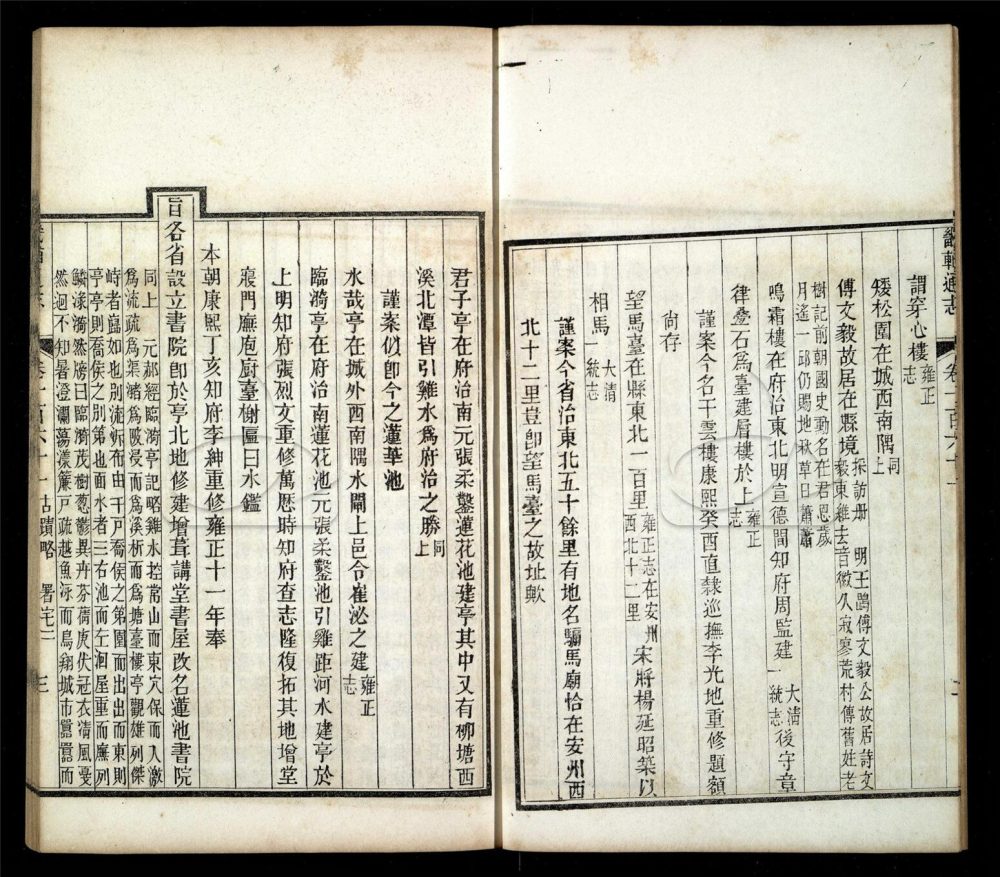 畿輔通志
卷一百六十一
謂穿心樓雍正志
矮松園在城西南隅同上
傅文毅故居在縣境採訪册 明王鷗傅文毅公故居詩文
毅東雒去音微久寂寥荒村傳舊姓老
樹記前朝國史勳名在君恩歲
月遙一邱仍賜地秋草日蕭蕭
鳴霜樓在府治東北明宣德間知府周監建大清一統志後守章
律叠石爲臺建層樓於上雍正志
謹案今名干雲樓康熙癸酉直隸巡撫李光地重修題額
尚存
望馬臺在縣東北一百里雍正志在安州西北十二里宋將楊延昭築以
相馬大清一統志
謹案今省治東北五十餘里有地名驪馬廟恰在安州西
北十二里豈即望馬臺之故址歟
君子亭在府治南元張柔鑿蓮花池建亭其中又有柳塘西
溪北潭皆引雞水爲府治之勝同上
謹案似即今之蓮華池
水哉亭在城外西南隅水閘上邑令崔泌之建雍正志
臨漪亭在府治南蓮花池元張柔鑿池引雞距河水建亭於
上明知府張烈文重修萬歷時知府查志隆復拓其地增堂
寢門廡庖廚臺榭匾曰水鑑
本朝康熙丁亥知府李紳重修雍正十一年奉
旨各省設立書院即於亭北地修建增葺講堂書屋改名蓮池書院
同上 元郝經臨漪亭記略雞水控常山而東穴保而入激
爲流疏爲渠瀦爲陂浸而爲溪析而爲塘臺樓亭觀雄列傑
峙者皆如也別流泝布由千戸喬侯之第園而出出而東則
亭亭則喬侯之別第也面水者三右池而左洄屋重而廡列
鱗漾漪然牓曰臨漪茂樹葱鬱異卉芬蒨庚伏冠衣清風戛
然迥不知暑澄瀾蕩漾簾戸疏越魚泳而鳥翔城市囂囂而
古蹟略 署宅二 三